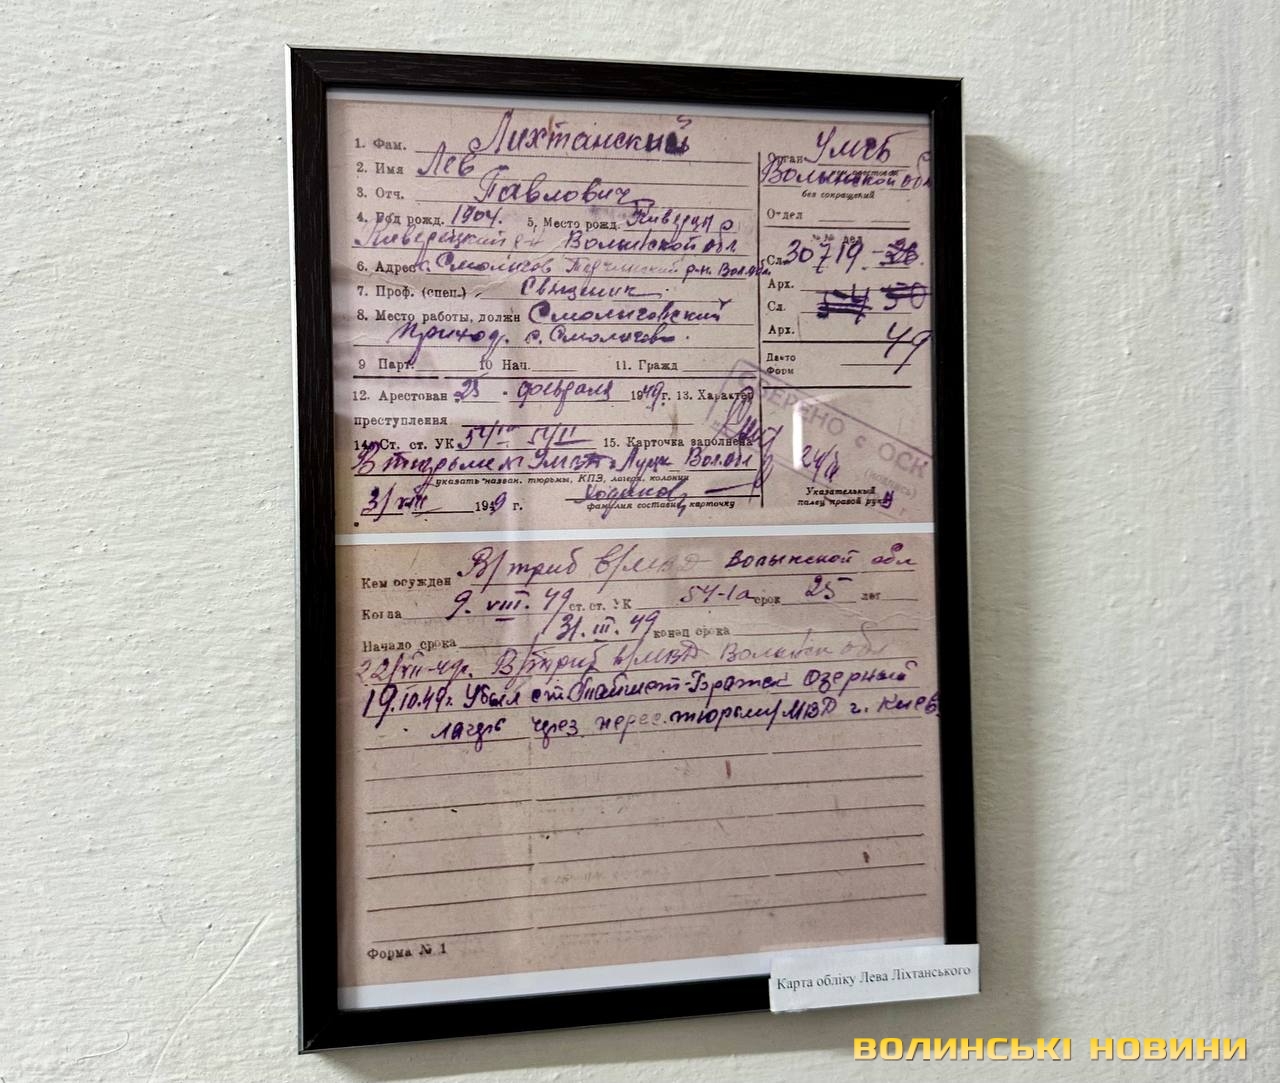 1. Фам. Лихтанский
2. Имя Лев
3. Отч. Павлович
4. Год рожд. 1904. 5. Место рожд. Киверцы
Киверецкий р-н Волынской обл
6. Адрес с. Смолигов р-н. Вол. обл.
7. Проф. (спец.) Священик
8. Место работы, должн Смолиговский
приход. с. Смолигово.
9 Парт. 10 Нац. 11. Гражд
12. Арестован 23 февраля 1949 г. 13. Характер
преступления
14. Ст. ст. УК 54/ 54/11 15. Карточка заполнена
В тюрьме Луцк Вол. обл
указать назван. тюрьмы, КПЗ, лагеря, колонии
31/VIII 1949 г.
фамилия составив. карточку
Орган УМГБ
Волынской обл
без сокращений
Отдел
№№ дел
Сл. 30719
Арх.
Сл. 50
Арх. 49
Дакто
Форм
СВЕРЕНО с ОСК
Указательный
палец правой руки
Кем осужден В/триб в/МВД Волынской обл
Когда 9. VIII. 49 ст. ст. УК 54-1а срок 25 лет
Начало срока 31. III. 49 конец срока
В/триб в/МВД Волынск обл
19.10.49г. Убыл ст. Тайшет-Братск Озерный
лагерь через перес. тюрьму МВД г. Киев.
Форма № 1
Карта обліку Лева Ліхтанського
ВОЛИНСЬКІ НОВИНИ